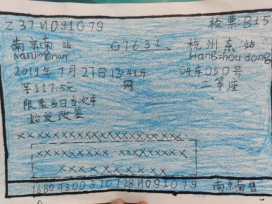 Z37N091079 检票B15
南京南站 G7631 杭州东站
Nanjingnan Hangzhoudong
2019年7月27日13:41开 04车05D号
￥117.5元 网 二等座
限乘当日当次车
始发改签
南京南售